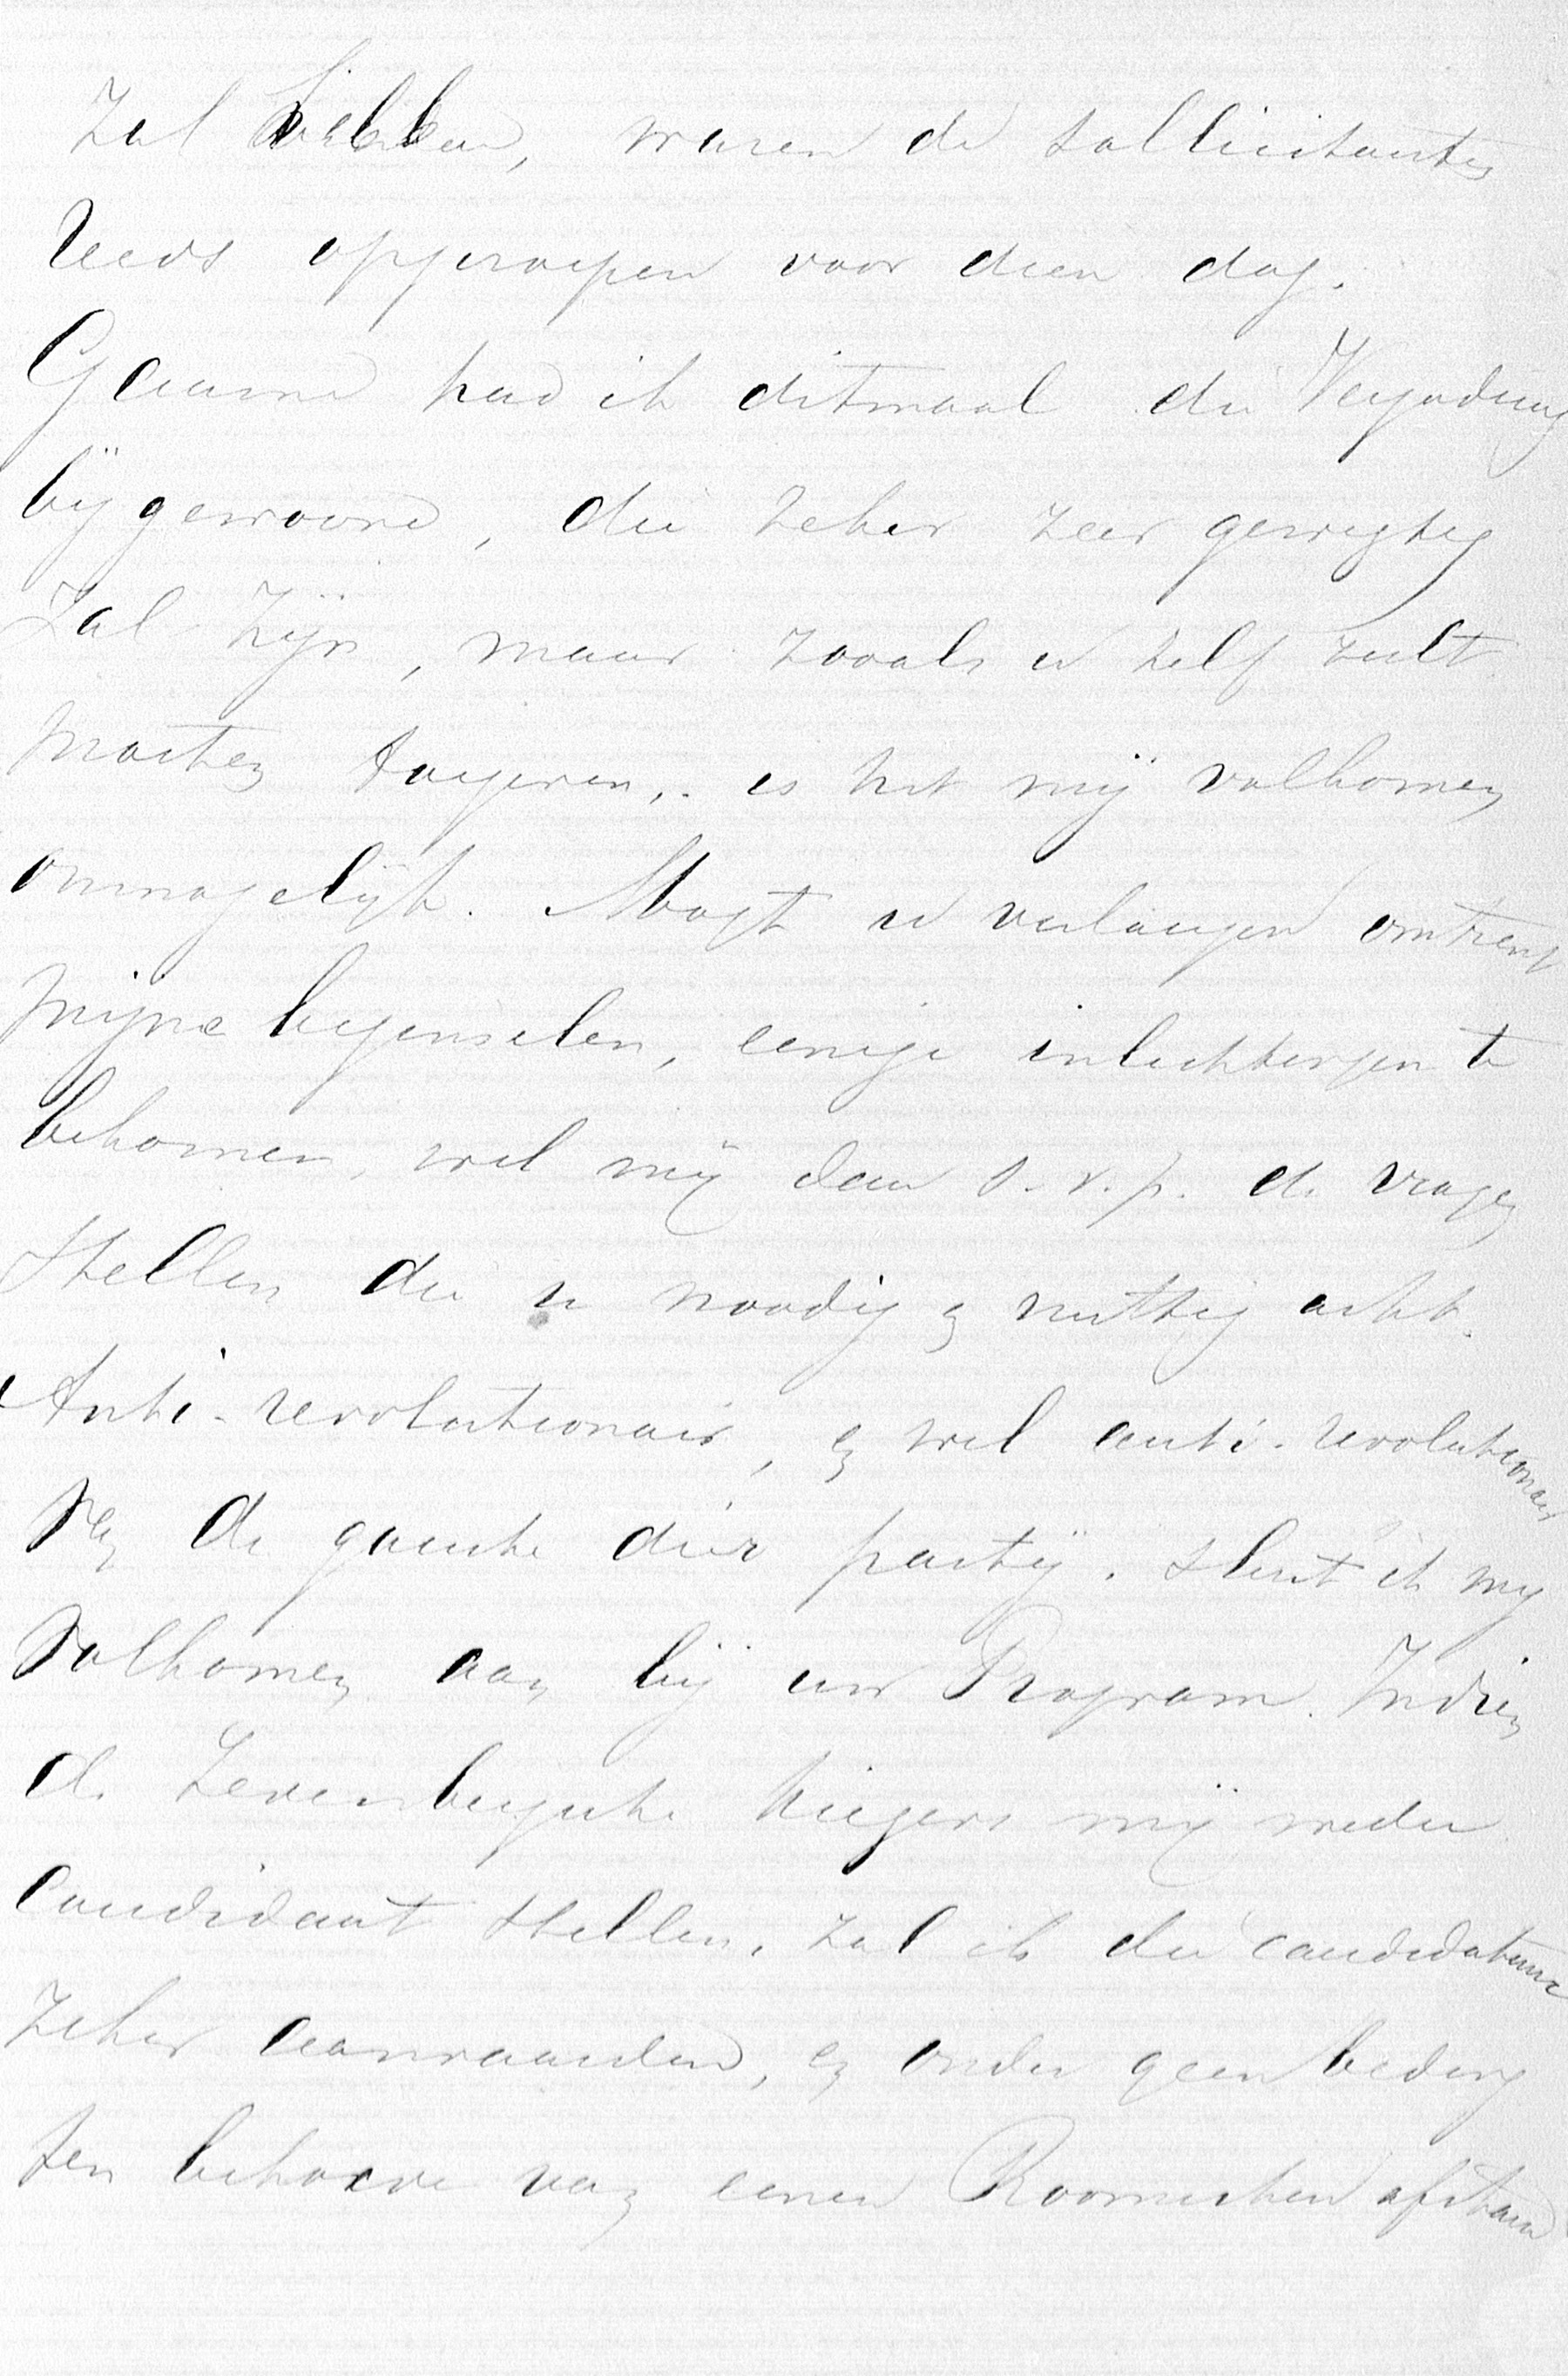 zal hebben, waren de sollicitanten
reeds opgeroepen voor dien dag.
Gaarne had ik ditmaal die Vergadering
bijgewoond, die zeker zeer gewigtig
zal zijn, maar zooals u zelf zult
moeten toegeven, is het mij volkomen
onmogelijk. Mogt u verlangen omtrent
mijne beginselen, eenige inlichtingen te
bekomen, wil mij dan s.v.p. de vragen
stellen die u noodig en nuttig acht.
Anti-revolutionair, en wel anti-revolutionair
van de gauche dier partij, sluit ik mij
volkomen aan bij uw Program. Indien
de Zevenbergsche kiezers mij weder
candidaat stellen, zal ik die candidatuur
zeker aanvaarden, en onder geen beding
ten behoeve van eenen Roomschen afstand